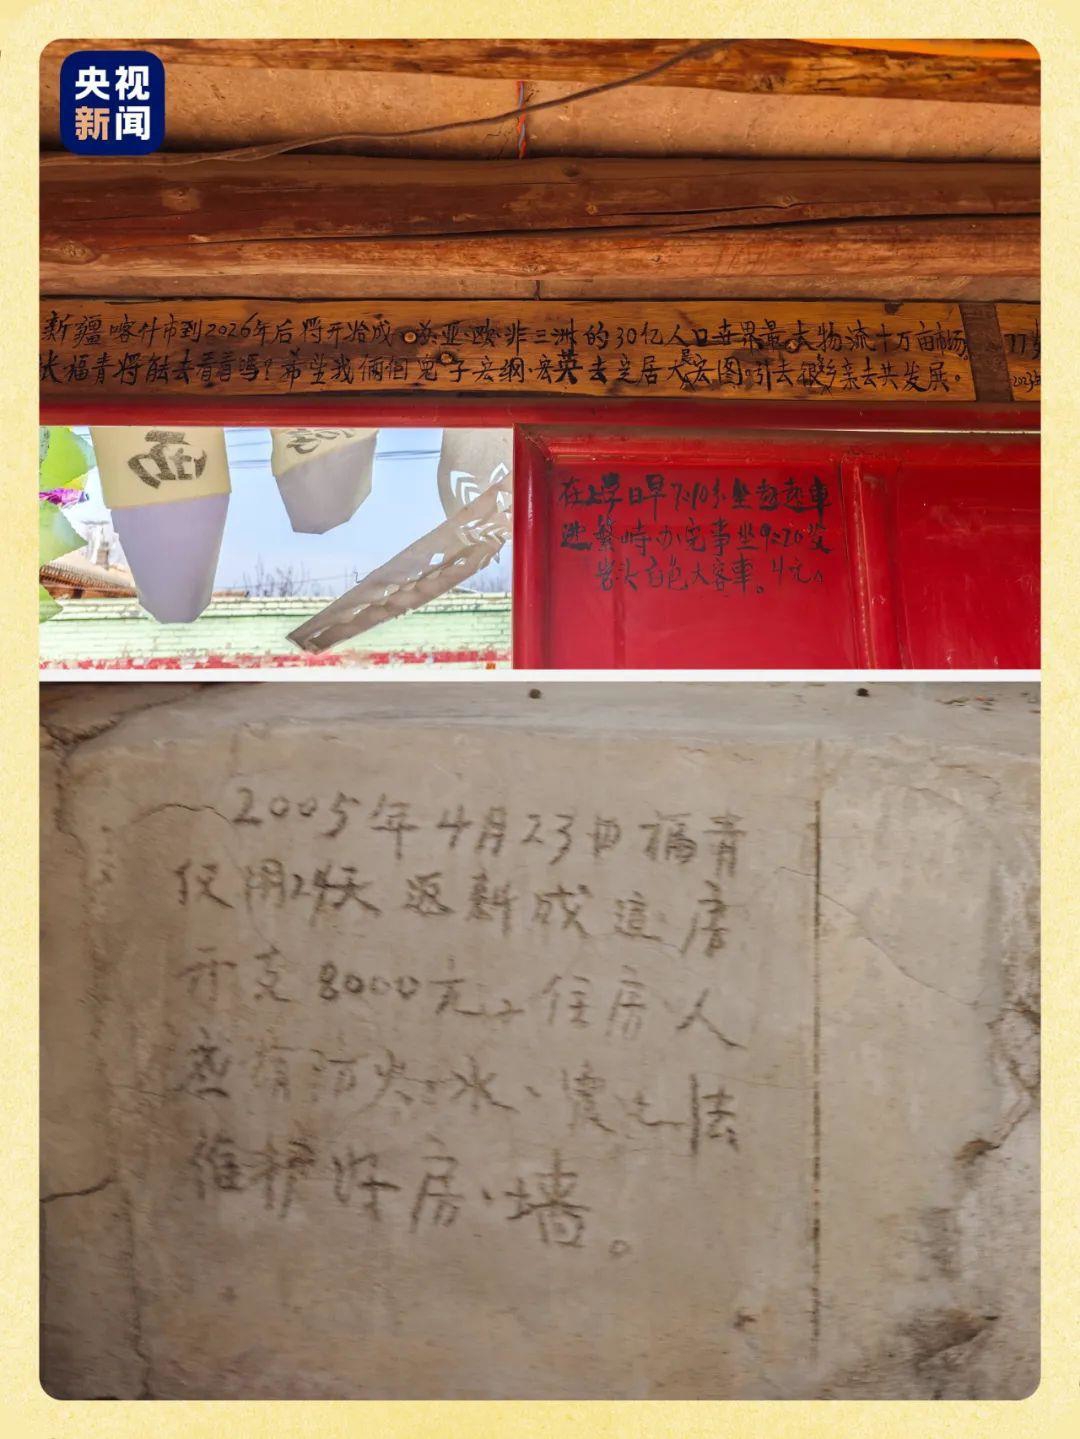 央视
新闻
新疆喀什市到2026年后将开始成为亚、欧、非三洲的30亿人口世界最大物流十万亩场
长福青将能去看看吗？希望我俩个儿子宏纲、宏英去定居大展宏图。引去很多乡亲去共发展。
77岁
2023年
在上学日早7:10分坐
进繁峙办完事坐9:20发
岩头白色大客车。4元
2005年4月23日福青
仅用24天返新成这房
开支8000元，住房人
应有防火、水、震之法
维护好房、墙。